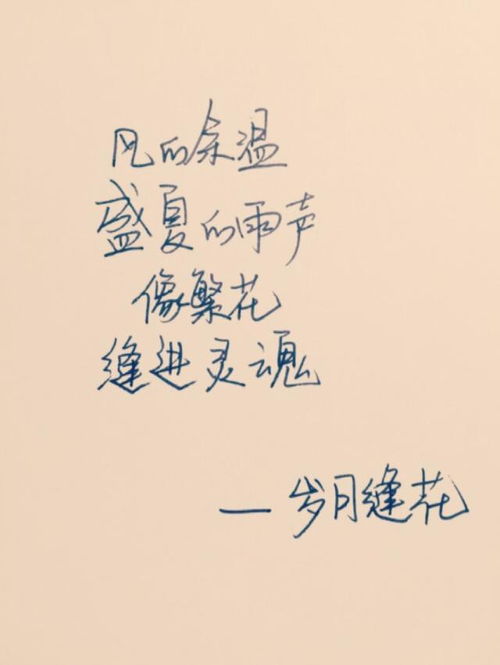 风的余温
盛夏的雨声
像繁花
缝进灵魂
—岁月缝花